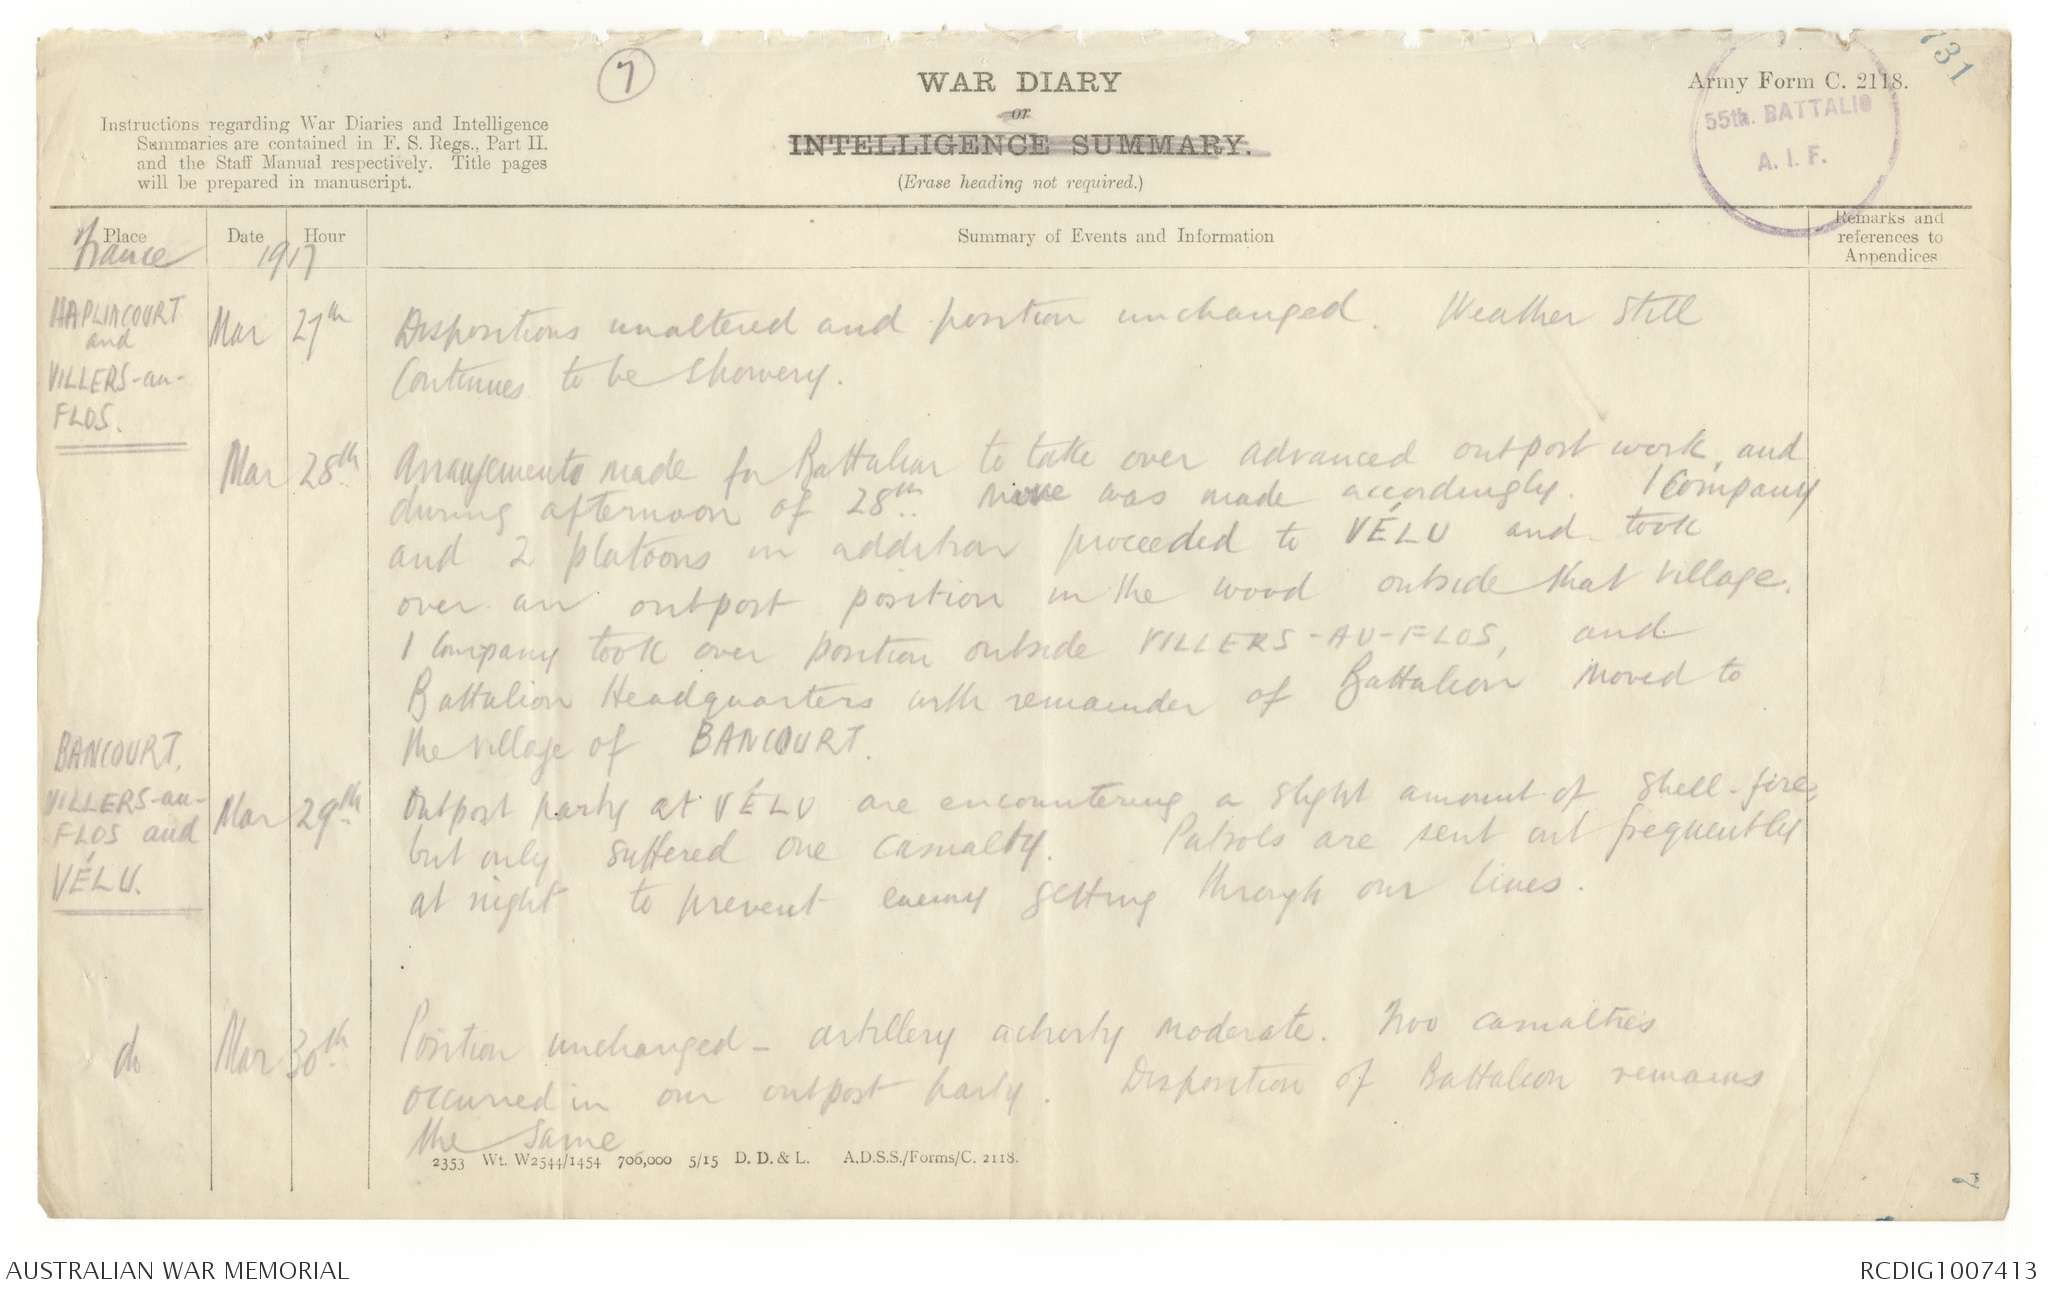 7
731
WAR DIARY
or
INTELLIGENCE SUMMARY.
(Erase heading not required.)
Army Form C. 2118.
55th. BATTALIO
A. I. F.
Instructions regarding War Diaries and Intelligence
Summaries are contained in F. S. Regs., Part II.
and the Staff Manual respectively. Title pages
will be prepared in manuscript.
Place Date Hour Summary of Events and Information Remarks and
references to
Appendices
France 1917
HAPLINCOURT
and
VILLERS-au-
FLOS.
Mar 27th Dispositions unaltered and position unchanged. Weather still
Continues to be showery.
Mar 28th Arrangements made for Battalion to take over advanced outpost work, and
during afternoon of 28th. move was made accordingly. 1 Company
and 2 platoons in addition proceeded to VÉLU and took
over an outpost position in the wood outside that village.
1 Company took over position outside VILLERS-AU-FLOS, and
Battalion Headquarters with remainder of Battalion moved to
the village of BANCOURT.
BANCOURT,
VILLERS-au-
FLOS and
VÉLU.
Mar 29th Outpost party at VÉLU are encountering a slight amount of shell-fire,
but only suffered one casualty. Patrols are sent out frequently
at night to prevent enemy getting through our lines.
do Mar 30th Position unchanged - artillery activity moderate. Two casualties
occurred in our outpost party. Disposition of Battalion remains
the same
2353 Wt. W2544/1454 700,000 5/15 D. D. & L. A.D.S.S./Forms/C. 2118.
AUSTRALIAN WAR MEMORIAL
RCDIG1007413